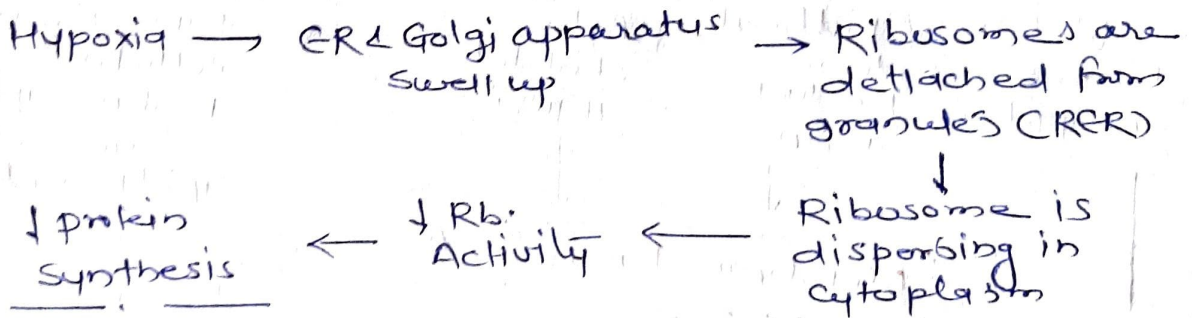 Hypoxia → ER & Golgi apparatus → Ribosomes are
swell up
detlached from
granules (RER)
↓
Ribosome is
dispersing in
cytoplasm
← ↓ Rb.
Activity
← ↓ protein
synthesis